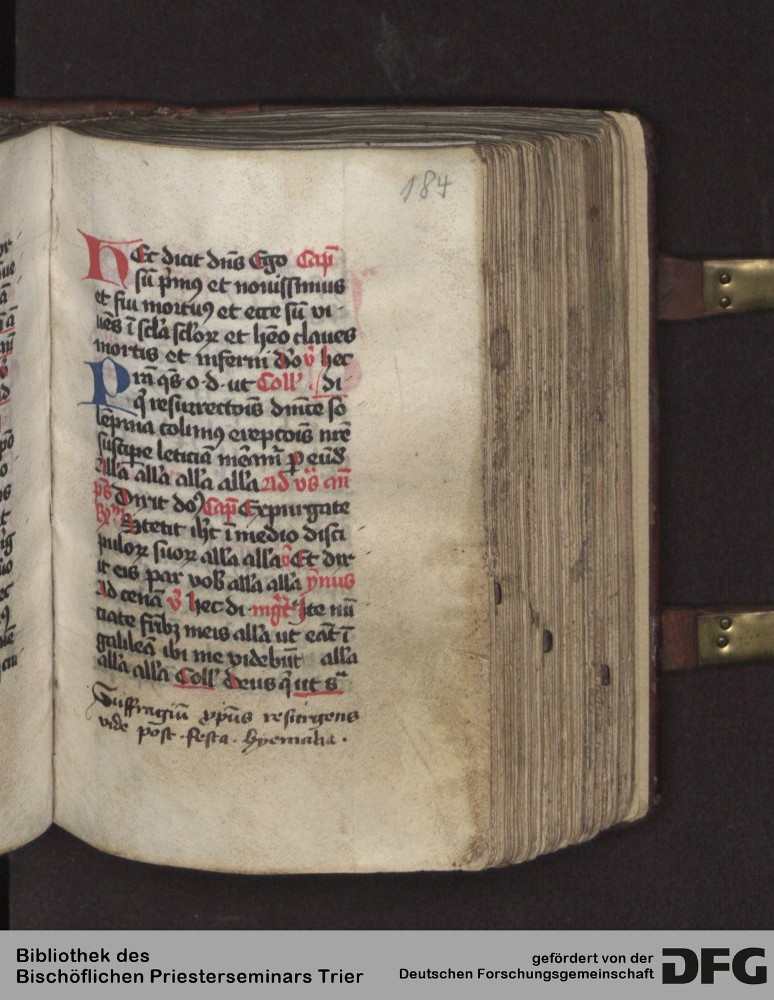 184
Hec dicit dn̄s Ego Cap̄
sū p̄mꝰ et nouissimus
et fui mortuꝰ et ecce sū vi
uēs ī scl̄a scl̄oꝝ et h̄eo claues
mortis et inferni do͛ v̄ hec
Pn̄ qs̄ o·d·ut Coll' di
q̄ resurrectōis dn̄ice so
lēpnia colimꝰ ereptōis nr̄e
suscipe leticiā
all'a all'a all'a all'a ad vs̄ an̄
ps̄ Dixit doꝰ Cap̄ Expurgate
Stetit ih̄c ī medio disci
puloꝝ suoꝝ all'a all'a v̄ Et dix
it eis pax vob̄ all'a all'a ẏmus
Ad cenā v̄ hec di mgt̄ Ite nū
ciate fr̄ibꝫ meis all'a ut eāt ī
galileā ibi me videbūt all'a
all'a all'a Coll' Deus q̄ ut sᵃ
Suffragiū xp̄us resurgens
vide post festa hyemalia.
Bibliothek des
Bischöflichen Priesterseminars Trier
gefördert von der
Deutschen Forschungsgemeinschaft
DFG